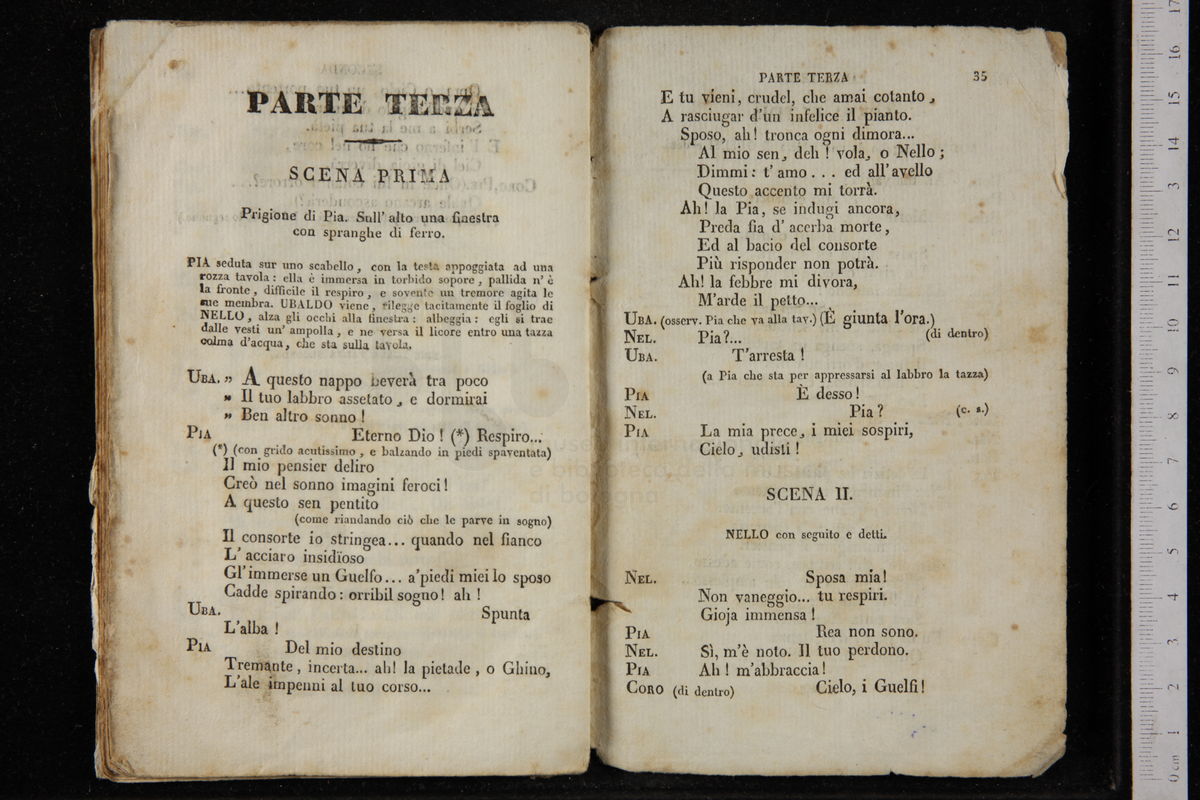 PARTE TERZA
SCENA PRIMA
Prigione di Pia. Sull' alto una finestra
con spranghe di ferro.
PIA seduta sur uno scabello, con la testa appoggiata ad una
rozza tavola: ella è immersa in torbido sopore, pallida n' è
la fronte, difficile il respiro, e sovente un tremore agita le
sue membra. UBALDO viene, rilegge tacitamente il foglio di
NELLO, alza gli occhi alla finestra: albeggia: egli si trae
dalle vesti un' ampolla, e ne versa il licore entro una tazza
colma d'acqua, che sta sulla tavola.
UBA. » A questo nappo beverà tra poco
» Il tuo labbro assetato, e dormirai
» Ben altro sonno!
PIA Eterno Dio! (*) Respiro...
(*) (con grido acutissimo, e balzando in piedi spaventata)
Il mio pensier deliro
Creò nel sonno imagini feroci!
A questo sen pentito
(come riandando ciò che le parve in sogno)
Il consorte io stringea... quando nel fianco
L' acciaro insidïoso
Gl' immerse un Guelfo... a' piedi miei lo sposo
Cadde spirando: orribil sogno! ah!
UBA. Spunta
L'alba!
PIA Del mio destino
Tremante, incerta... ah! la pietade, o Ghino,
L'ale impenni al tuo corso...
PARTE TERZA 35
E tu vieni, crudel, che amai cotanto,
A rasciugar d'un infelice il pianto.
Sposo, ah! tronca ogni dimora...
Al mio sen, deh! vola, o Nello;
Dimmi: t' amo... ed all' avello
Questo accento mi torrà.
Ah! la Pia, se indugi ancora,
Preda fia d' acerba morte,
Ed al bacio del consorte
Più risponder non potrà.
Ah! la febbre mi divora,
M'arde il petto...
UBA. (osserv. Pia che va alla tav.) (È giunta l'ora.)
NEL. Pia?... (di dentro)
UBA. T'arresta!
(a Pia che sta per appressarsi al labbro la tazza)
PIA È desso!
NEL. Pia? (c. s.)
PIA La mia prece, i miei sospiri,
Cielo, udisti!
SCENA II.
NELLO con seguito e detti.
NEL. Sposa mia!
Non vaneggio... tu respiri.
Gioja immensa!
PIA Rea non sono.
NEL. Sì, m'è noto. Il tuo perdono.
PIA Ah! m'abbraccia!
CORO (di dentro) Cielo, i Guelfi!